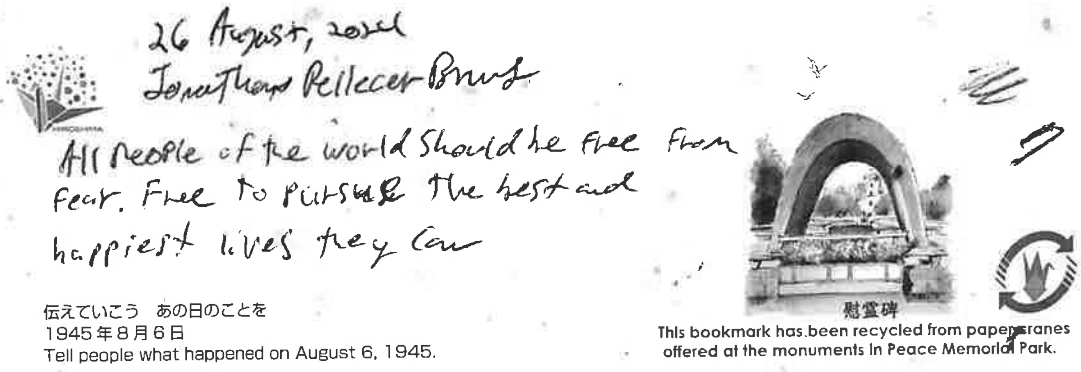 26 August, 2024
Jonathan Pellecer
HIROSHIMA
All People of the world should be free from
fear. Free to pursue the best and
happiest lives they can
伝えていこう あの日のことを
1945年8月6日
Tell people what happened on August 6, 1945.
慰霊碑
This bookmark has been recycled from paper cranes
offered at the monuments in Peace Memorial Park.